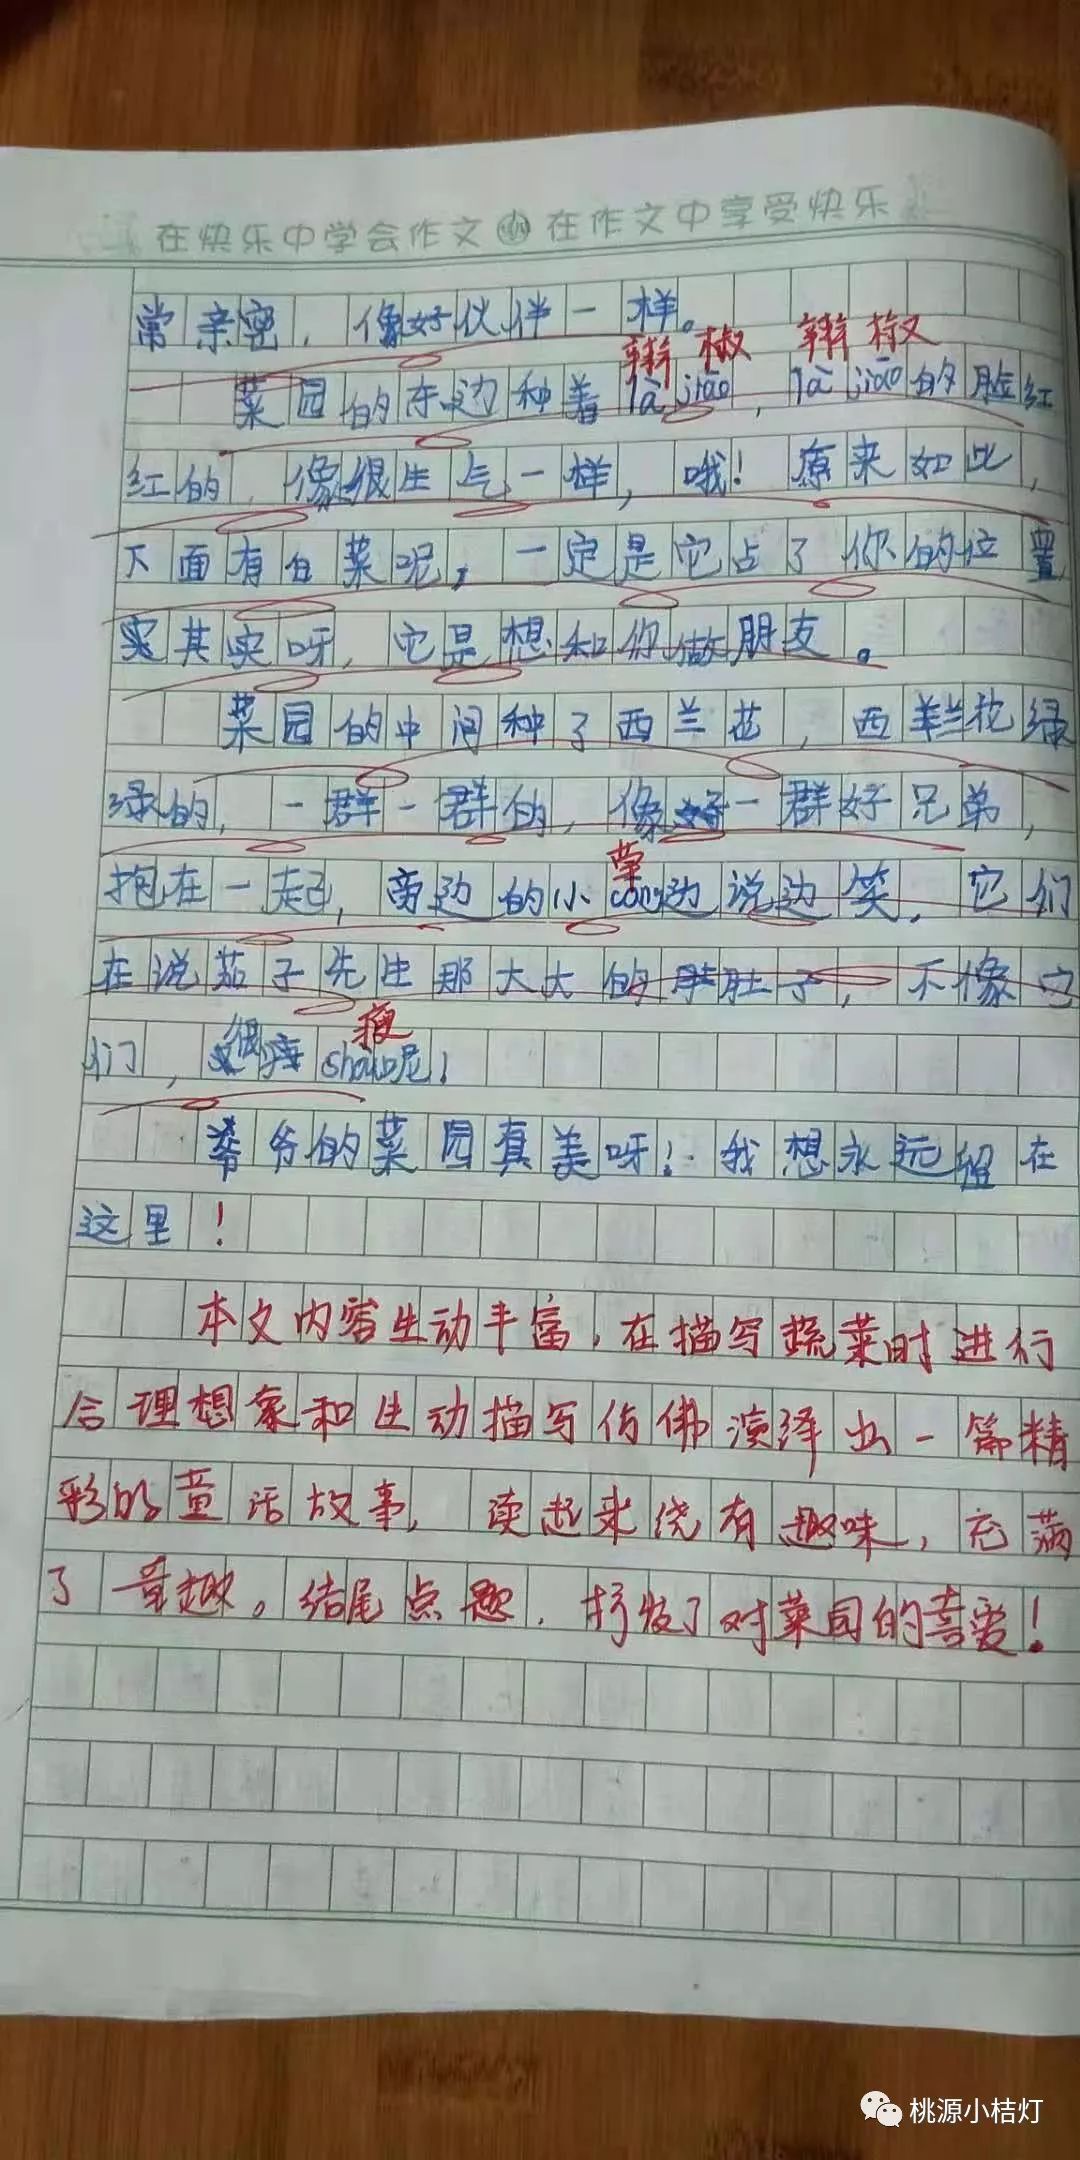 在快乐中学会作文 在作文中享受快乐
常亲密，像好伙伴一样。
辣椒 辣椒
菜园的东边种着là jiāo，là jiāo的脸红
红的，像很生气一样，哦！原来如此，
下面有白菜呢，一定是它占了你的位置
其实呀，它是想和你做朋友。
菜园的中间种了西兰花，西兰花绿
绿的，一群一群的，像一群好兄弟，
抱在一起，旁边的小cōng边说边笑，它们
在说茄子先生那大大的肚子，不像它
瘦
们，很shòu呢！
爷爷的菜园真美呀！我想永远留在
这里！
本文内容生动丰富，在描写蔬菜时进行
合理想象和生动描写仿佛演绎出一篇精
彩的童话故事，读起来绕有趣味，充满
了童趣。结尾点题，抒发了对菜园的喜爱！
桃源小桔灯